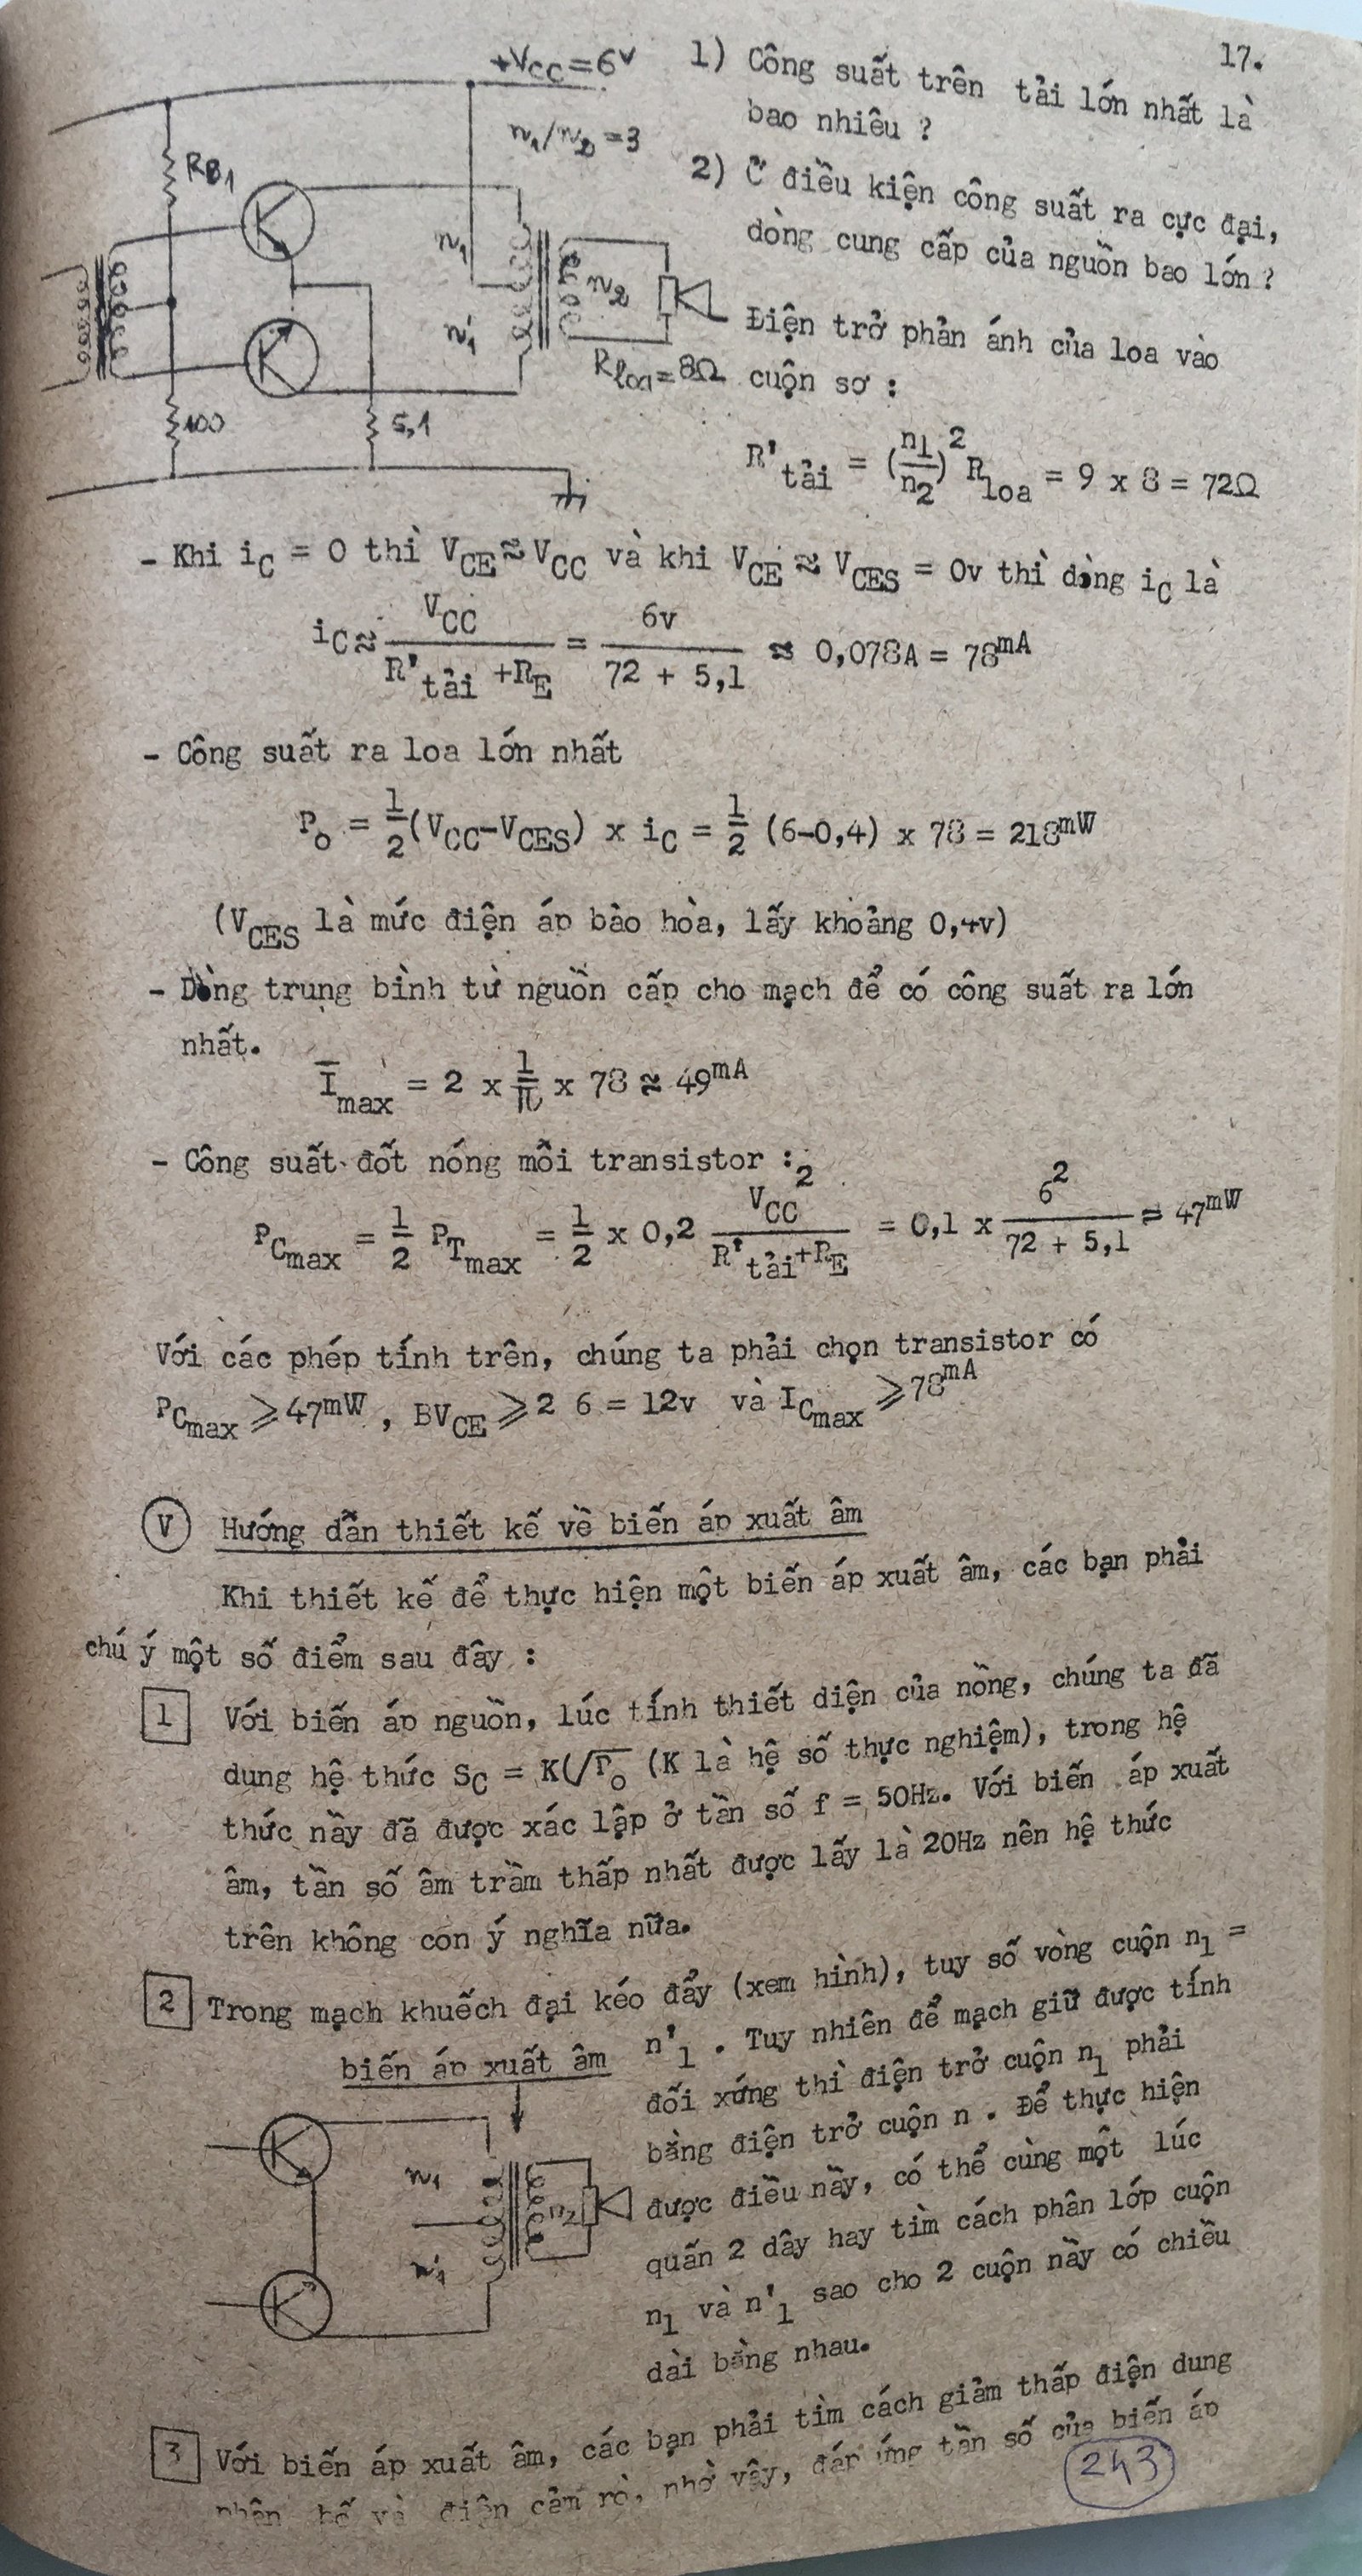 17.
+VCC = 6v
n1/n2 = 3
RB1
n1
n'1
n2
Rloa = 8Ω
100
5,1
1) Công suất trên tải lớn nhất là
bao nhiêu ?
2) Ở điều kiện công suất ra cực đại,
dòng cung cấp của nguồn bao lớn ?
Điện trở phản ánh của loa vào
cuộn sơ :
R'tải = (n1/n2)² Rloa = 9 x 8 = 72Ω
- Khi iC = 0 thì VCE ≈ VCC và khi VCE ≈ VCES = 0v thì dòng iC là
iC ≈ VCC / (R'tải + RE) = 6v / (72 + 5,1) ≈ 0,078A = 78mA
- Công suất ra loa lớn nhất
Po = 1/2 (VCC-VCES) x iC = 1/2 (6-0,4) x 78 = 218mW
(VCES là mức điện áp bảo hòa, lấy khoảng 0,4v)
- Dòng trung bình từ nguồn cấp cho mạch để có công suất ra lớn
nhất.
Īmax = 2 x 1/π x 78 ≈ 49mA
- Công suất đốt nóng mỗi transistor :
PCmax = 1/2 PTmax = 1/2 x 0,2 VCC² / (R'tải+RE) = 0,1 x 6² / (72 + 5,1) ≈ 47mW
Với các phép tính trên, chúng ta phải chọn transistor có
PCmax ⩾ 47mW , BVCE ⩾ 2 6 = 12v và ICmax ⩾ 78mA
V Hướng dẫn thiết kế về biến áp xuất âm
Khi thiết kế để thực hiện một biến áp xuất âm, các bạn phải
chú ý một số điểm sau đây :
1 Với biến áp nguồn, lúc tính thiết diện của nồng, chúng ta đã
dụng hệ thức SC = K√Po (K là hệ số thực nghiệm), trong hệ
thức nầy đã được xác lập ở tần số f = 50Hz. Với biến áp xuất
âm, tần số âm trầm thấp nhất được lấy là 20Hz nên hệ thức
trên không còn ý nghĩa nữa.
2 Trong mạch khuếch đại kéo đẩy (xem hình), tuy số vòng cuộn n1 =
n'1 . Tuy nhiên để mạch giữ được tính
đối xứng thì điện trở cuộn n1 phải
bằng điện trở cuộn n . Để thực hiện
được điều nầy, có thể cùng một lúc
quấn 2 dây hay tìm cách phân lớp cuộn
n1 và n'1 sao cho 2 cuộn này có chiều
dài bằng nhau.
biến áp xuất âm
n1
n'1
n2
3 Với biến áp xuất âm, các bạn phải tìm cách giảm thấp điện dung
phân bố và điện cảm rò, nhờ vậy, đáp ứng tần số của biến áp
243